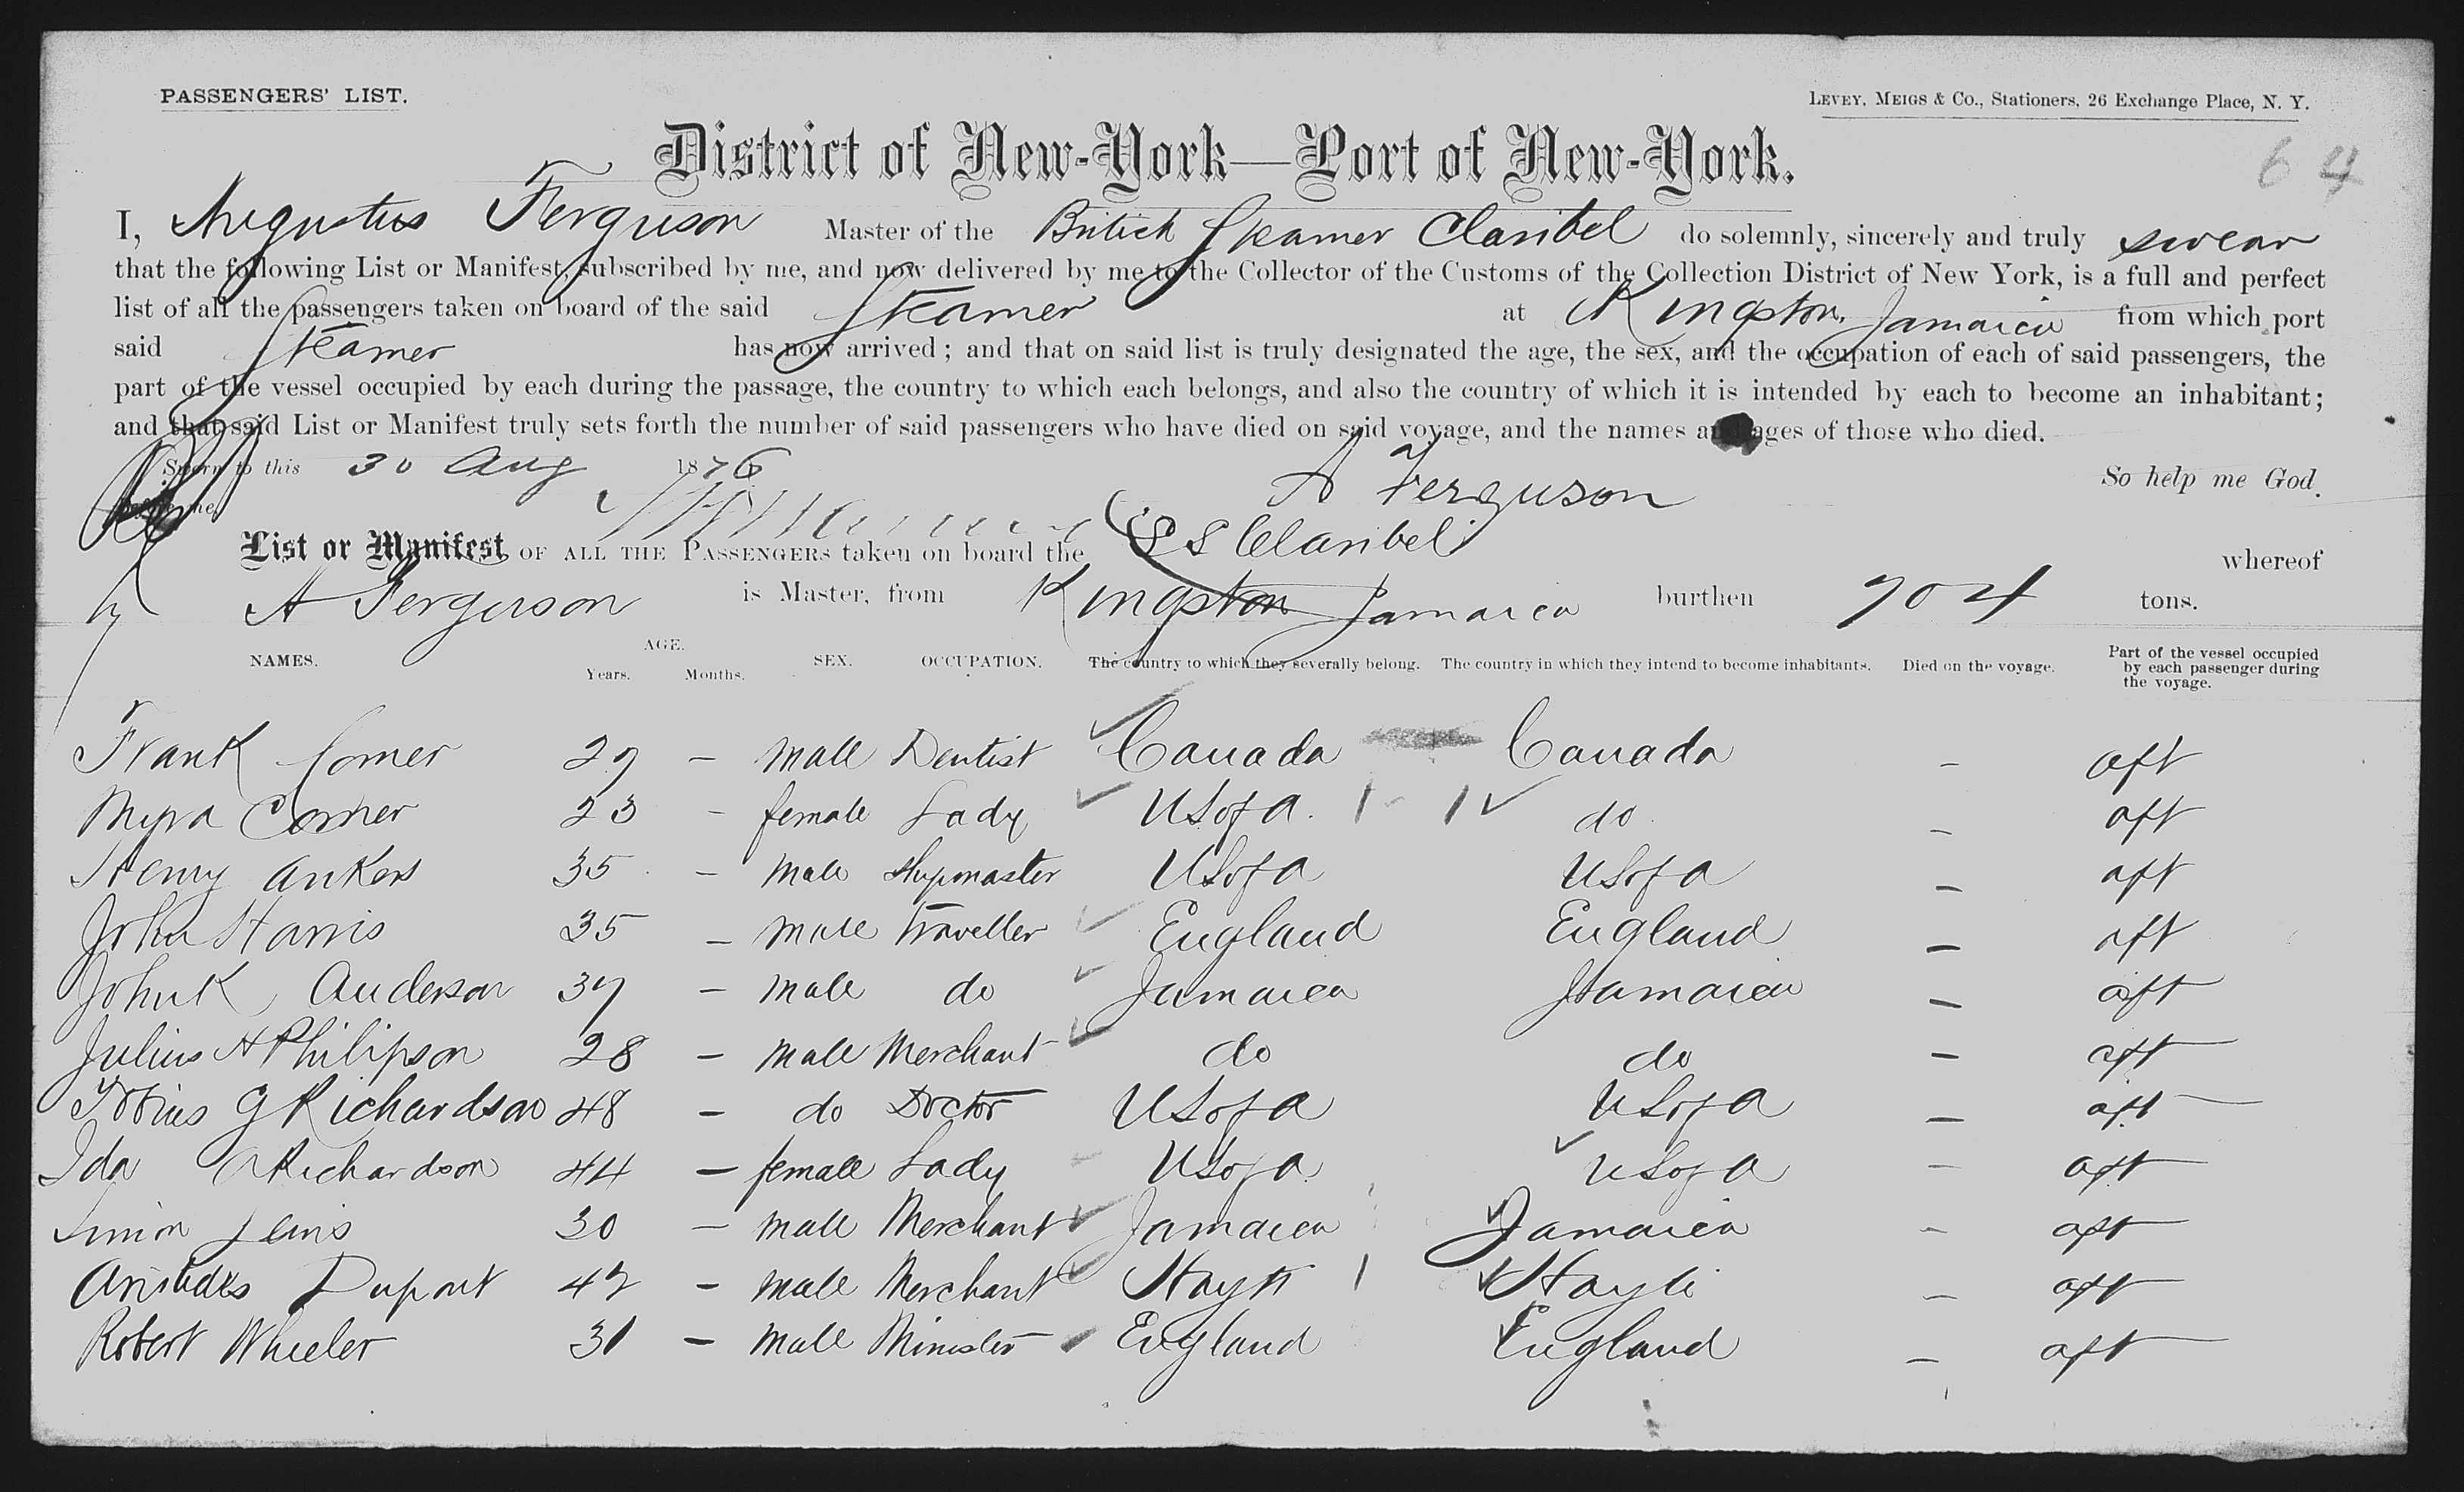 PASSENGERS' LIST.
LEVEY, MEIGS & Co., Stationers, 26 Exchange Place, N. Y.
District of New-York—Port of New-York.
64
I, Augustus Ferguson Master of the British Steamer Claribel do solemnly, sincerely and truly swear
that the following List or Manifest, subscribed by me, and now delivered by me to the Collector of the Customs of the Collection District of New York, is a full and perfect
list of all the passengers taken on board of the said Steamer at Kingston, Jamaica from which port
said Steamer has now arrived; and that on said list is truly designated the age, the sex, and the occupation of each of said passengers, the
part of the vessel occupied by each during the passage, the country to which each belongs, and also the country of which it is intended by each to become an inhabitant;
and that said List or Manifest truly sets forth the number of said passengers who have died on said voyage, and the names and ages of those who died.
Sworn to this 30 Aug 1876 So help me God.
before me A Ferguson
List or Manifest OF ALL THE PASSENGERS taken on board the SS Claribel whereof
A Ferguson is Master, from Kingston Jamaica burthen 704 tons.
NAMES. AGE. Years. Months. SEX. OCCUPATION. The country to which they severally belong. The country in which they intend to become inhabitants. Died on the voyage. Part of the vessel occupied by each passenger during the voyage.
Frank Comer 29 – male Dentist Canada Canada – aft
Myra Comer 23 – female Lady U S of A. do – aft
Henry Ankers 35 – male Shipmaster U S of A U S of A – aft
John Harris 35 – male Traveller England England – aft
John K Anderson 39 – male do Jamaica Jamaica – aft
Julius H Philipson 28 – male Merchant do do – aft
Tobias G Richardson 48 – do Doctor U S of A U S of A – aft
Ida A Richardson 44 – female Lady U S of A U S of A – aft
Simon 30 – male Merchant Jamaica Jamaica – aft
Aristides Dupont 42 – male Merchant Hayti Hayti – aft
Robert Wheeler 31 – male Minister England England – aft